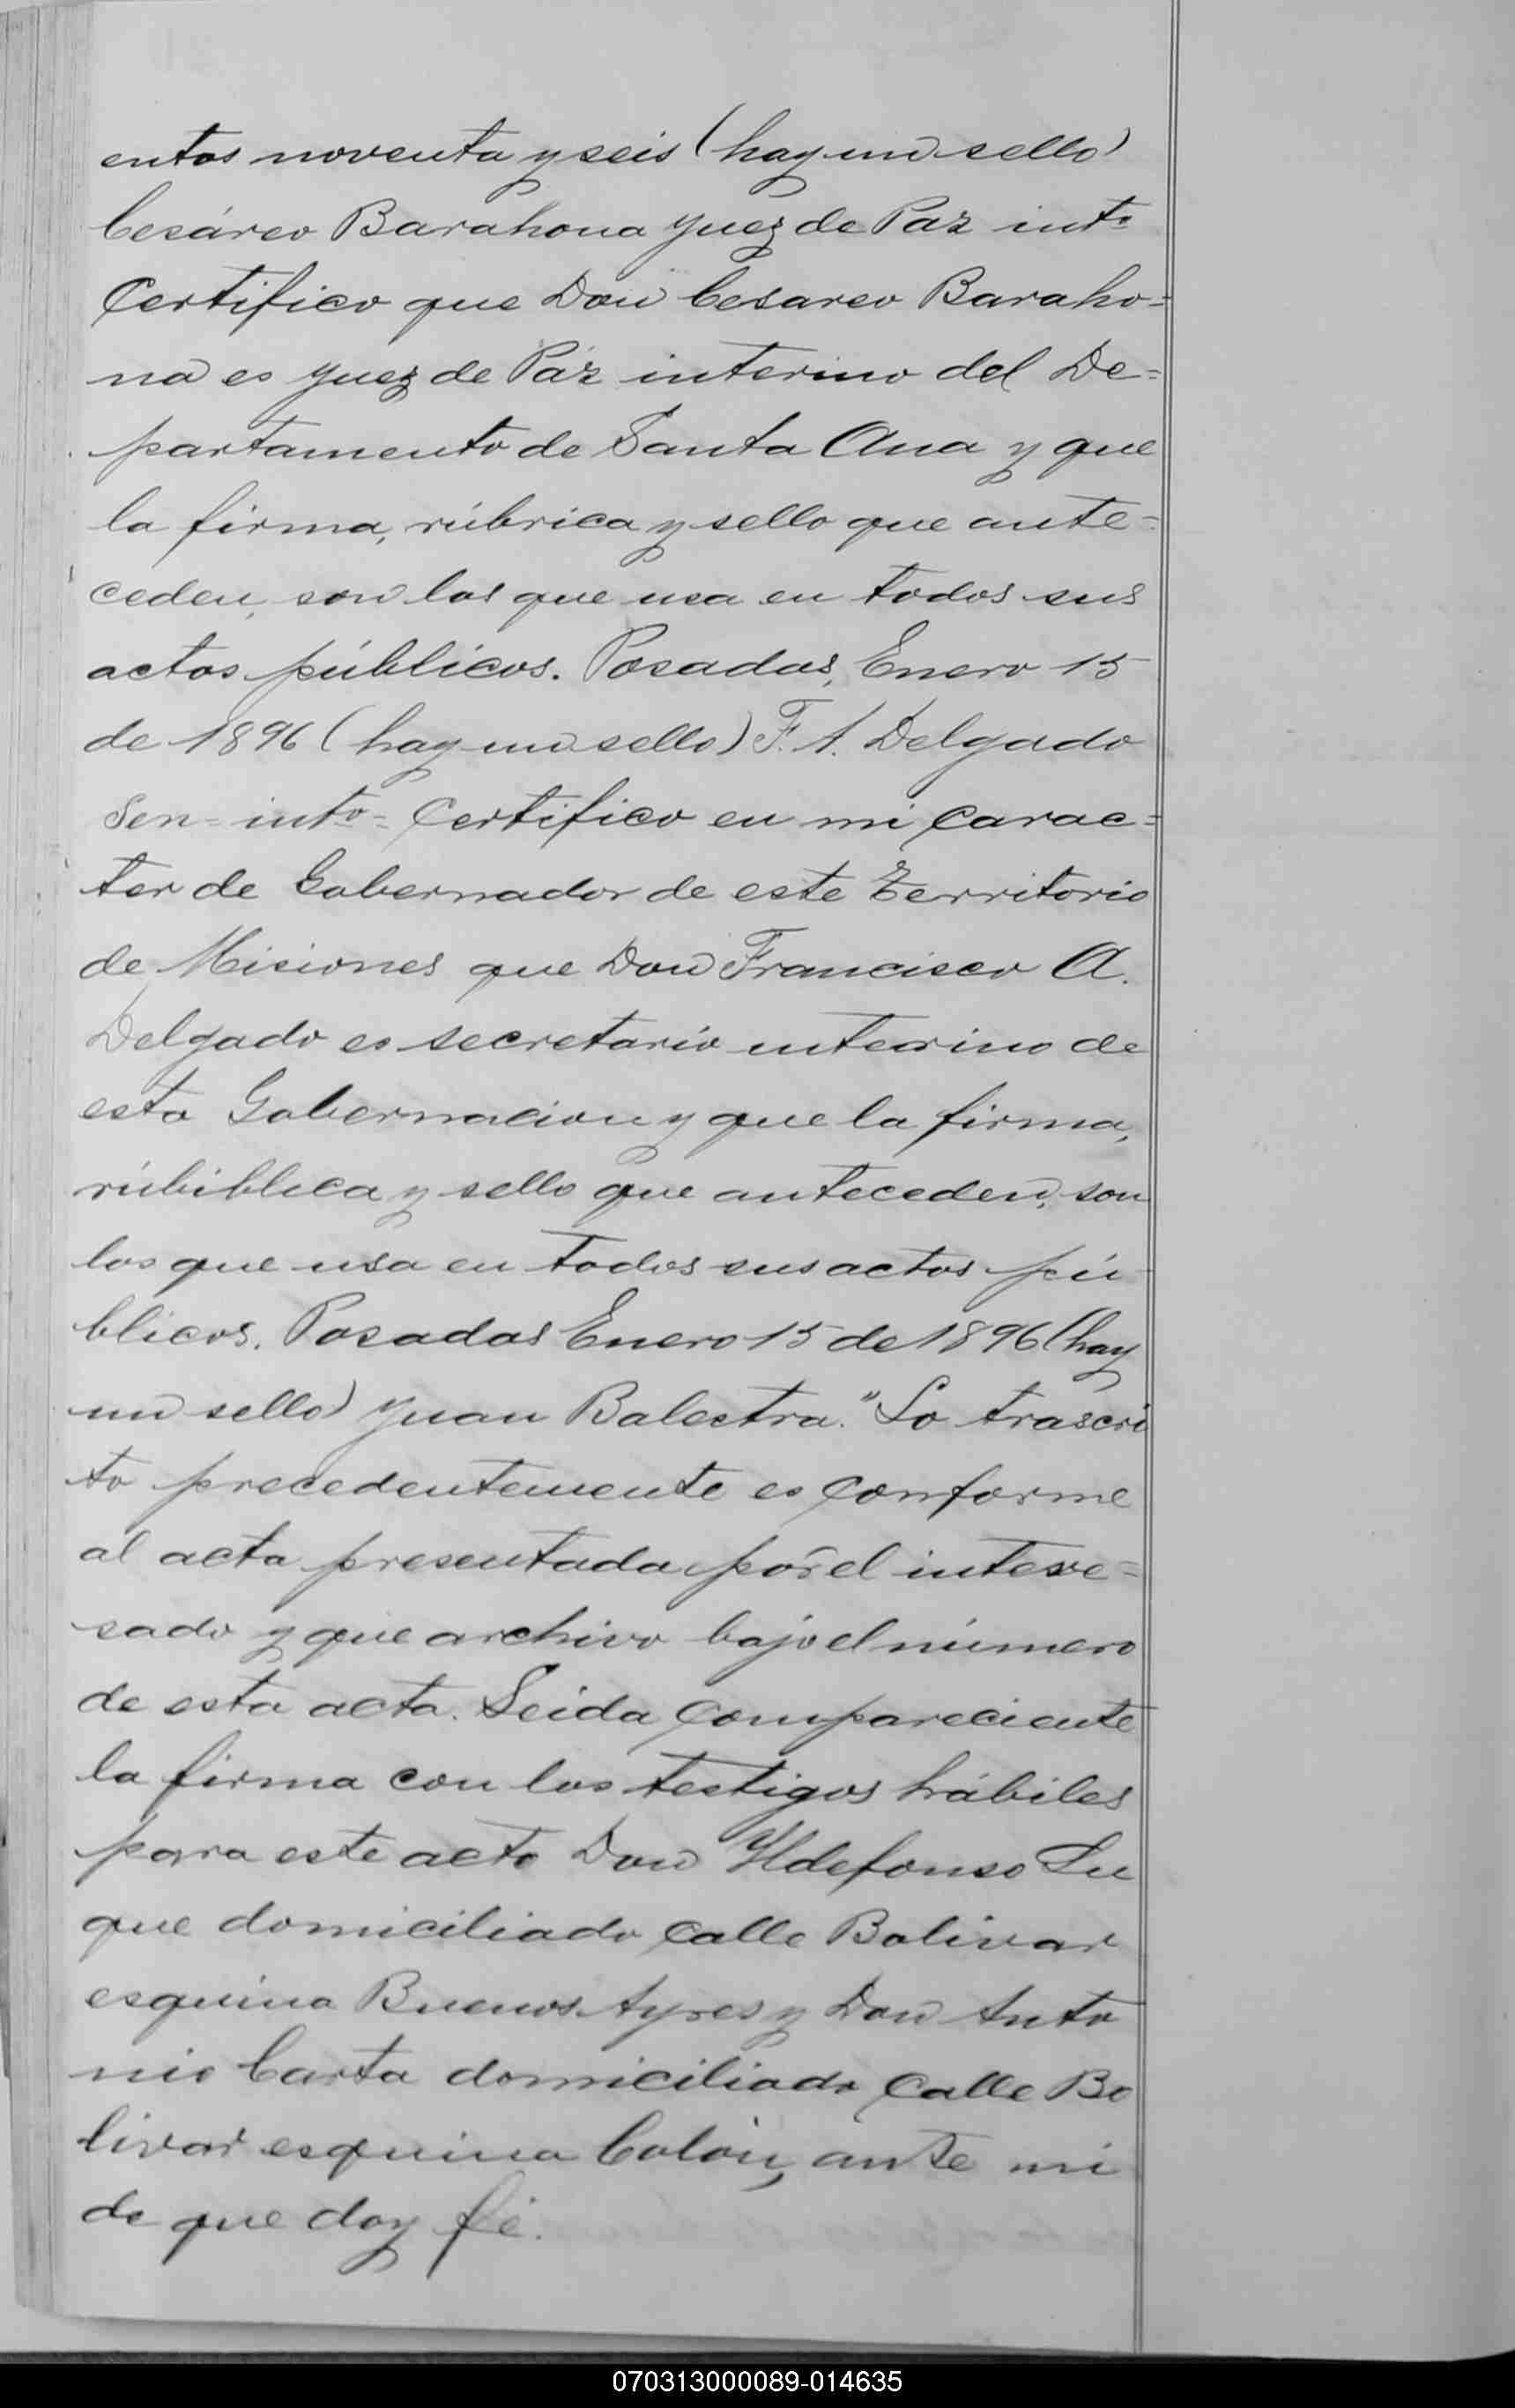 entos noventa y seis (hay un sello)
Cesáreo Barahona Juez de Paz int°
Certifico que Don Cesareo Baraho=
na es Juez de Páz interino del De=
partamento de Santa Ana y que
la firma, rúbrica y sello que ante=
ceden, son los que usa en todos sus
actos públicos. Posadas, Enero 15
de 1896 (hay un sello) F. A. Delgado
Sen= int°= Certifico en mi carac=
ter de Gobernador de este Territorio
de Misiones que Don Francisco A.
Delgado es secretario interino de
esta Gobernacion y que la firma,
rúbiblica y sello que anteceden, son
los que usa en todos sus actos pú
blicos. Posadas Enero 15 de 1896 (hay
un sello) Juan Balestra." Lo trascri
to precedentemente es conforme
al acta presentada por el intere=
sado y que archivo bajo el número
de esta acta. Leida compareciente
la firma con los testigos hábiles
para este acto Don Ildefonso Lu
que domiciliado calle Bolivar
esquina Buenos Ayres y Don Anto
nio Carta domiciliado calle Bo
livar esquina Colón, ante mi
de que doy fé.
070313000089-014635